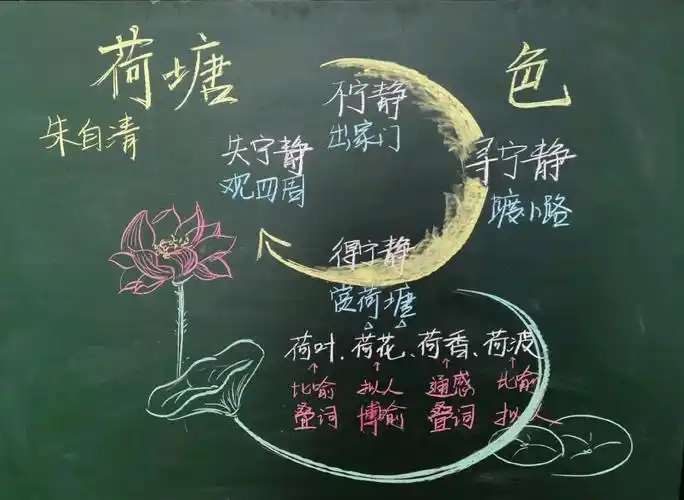 荷塘 色
朱自清
不宁静
出家门
寻宁静
踱小路
得宁静
赏荷塘
失宁静
观四周
荷叶、荷花、荷香、荷波
比喻 拟人 通感 比喻
叠词 博喻 叠词 拟人